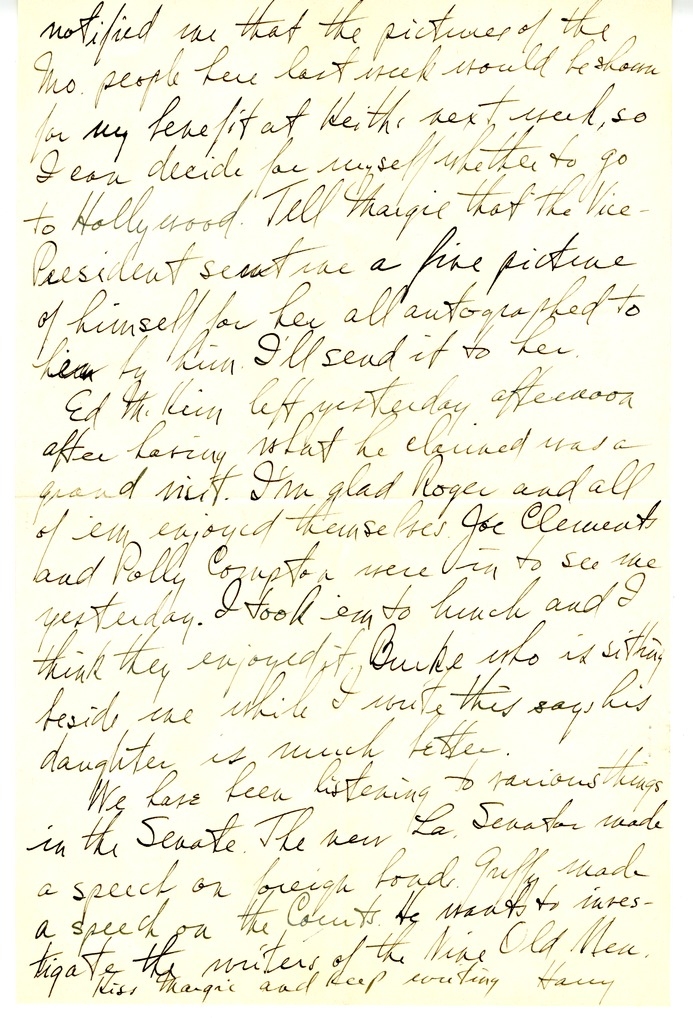 notified me that the pictures of the
Mo. people here last week would be shown
for my benefit at Keith's next week, so
I can decide for myself whether to go
to Hollywood. Tell Margie that the Vice-
President sent me a fine picture
of himself for her all autographed to
her by him. I'll send it to her.
Ed McKim left yesterday afternoon
after having what he claimed was a
grand visit. I'm glad Roger and all
of 'em enjoyed themselves. Joe Clements
and Polly Compton were in to see me
yesterday. I took 'em to lunch and I
think they enjoyed it. Burke who is sitting
beside me while I write this says his
daughter is much better.
We have been listening to various things
in the Senate. The new La. Senator made
a speech on foreign bonds. Guffy made
a speech on the Courts. He wants to inves-
tigate the writers of the Nine Old Men.
Kiss Margie and keep writing Harry